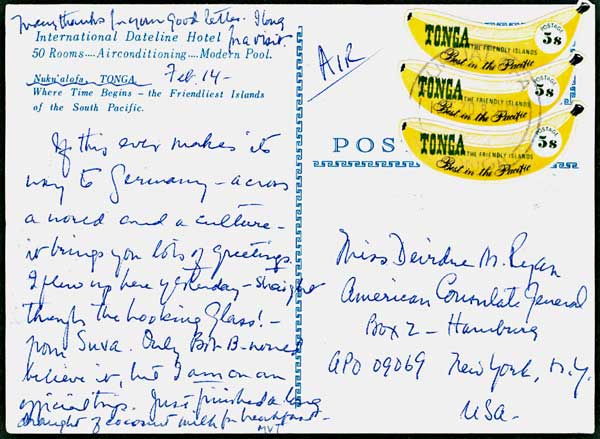 Many thanks for your good letter. I long
for a visit.
International Dateline Hotel
50 Rooms....Airconditioning....Modern Pool.
Nuku'alofa, TONGA Feb 14-
Where Time Begins – the Friendliest Islands
of the South Pacific.
If this ever makes its
way to Germany – across
a world and a culture –
it brings you lots of greetings.
I flew up here yesterday – straight
through the Looking Glass! –
from Suva. Only Bob B- would
believe it, but I am on an
official trip. Just finished a long
draught of coconut milk for breakfast –
MVT
AIR
TONGA THE FRIENDLY ISLANDS
Best in the Pacific
POSTAGE 5s
TONGA THE FRIENDLY ISLANDS
Best in the Pacific
POSTAGE 5s
TONGA THE FRIENDLY ISLANDS
Best in the Pacific
POSTAGE 5s
POST
Miss Deirdre M. Ryan
American Consulate General
Box 2 – Hamburg
APO 09069 New York, N.Y.
USA –